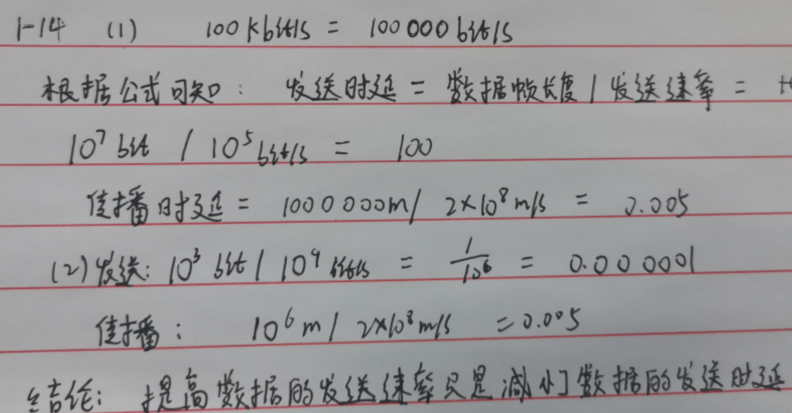 1-14 (1) 100kbit/s = 100000bit/s
根据公式可知: 发送时延 = 数据帧长度 / 发送速率 =
10⁷bit / 10⁵bit/s = 100
传播时延 = 1000000m / 2×10⁸m/s = 0.005
(2)发送: 10³bit / 10⁹bit/s = 1/10⁶ = 0.000001
传播: 10⁶m / 2×10⁸m/s = 0.005
结论: 提高数据的发送速率只是减小了数据的发送时延